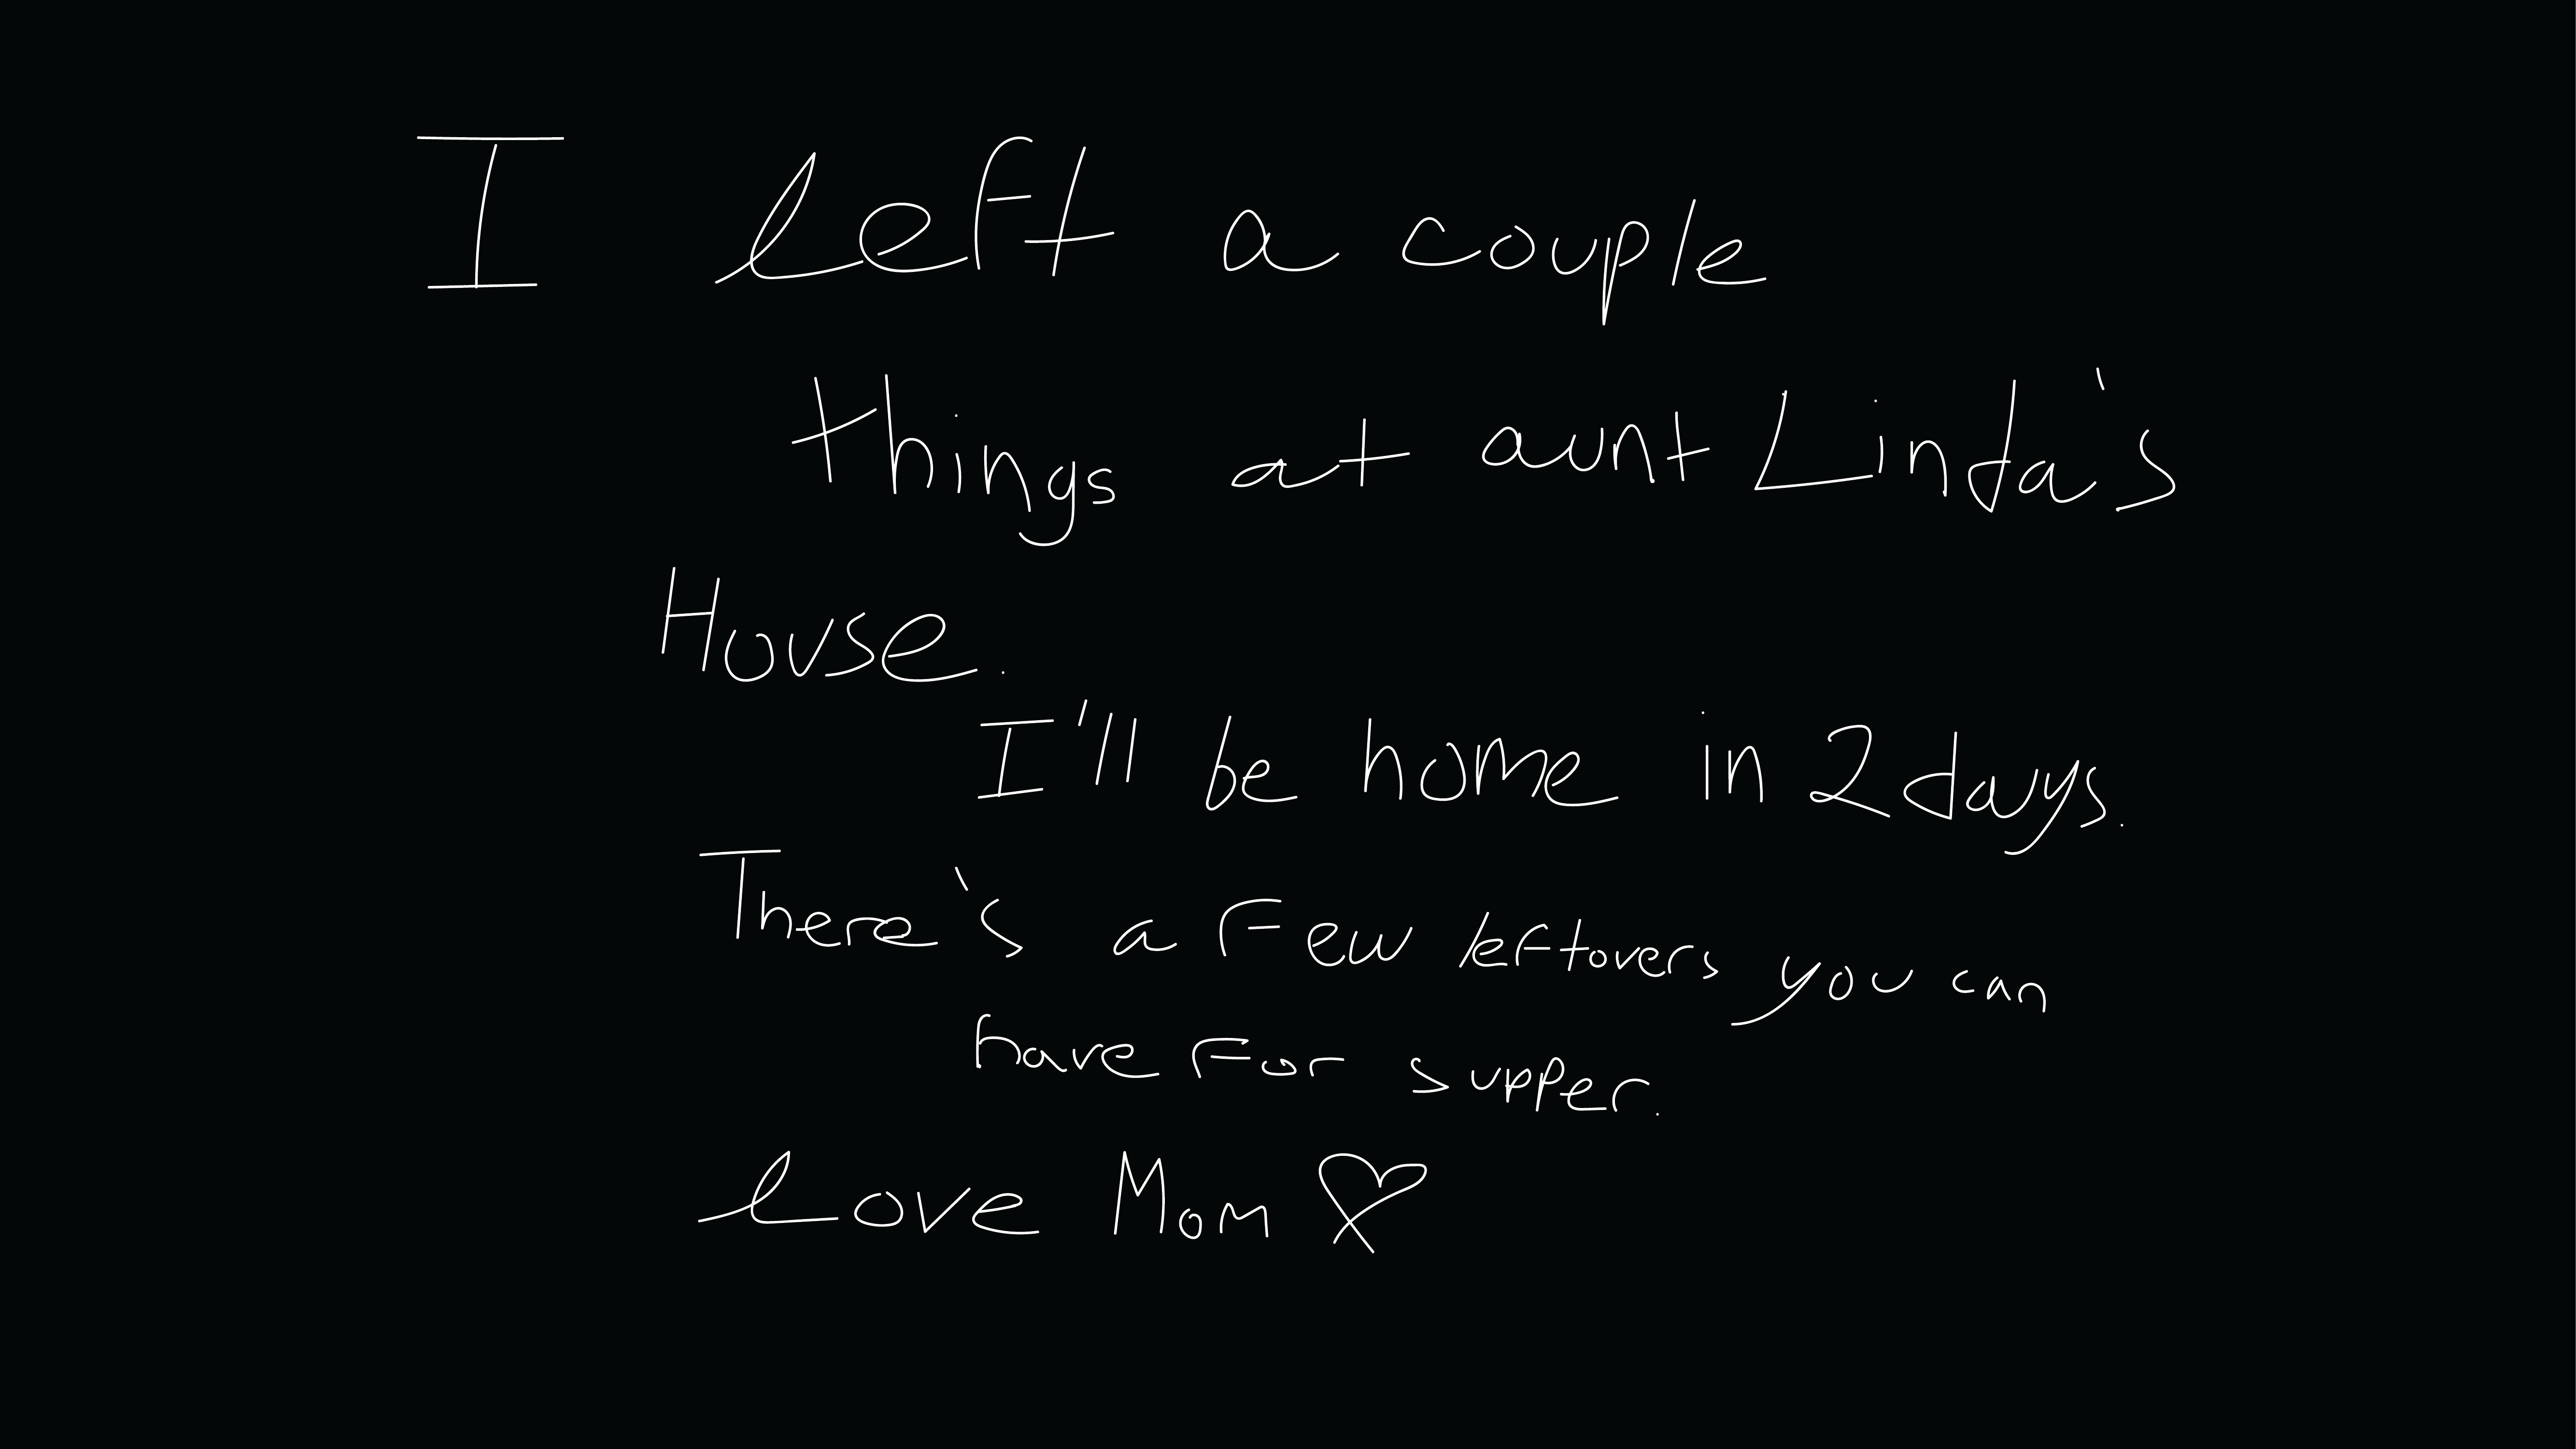 I left a couple
things at aunt Linda's
House.
I'll be home in 2 days.
There's a few leftovers you can
have for supper.
love Mom ♡